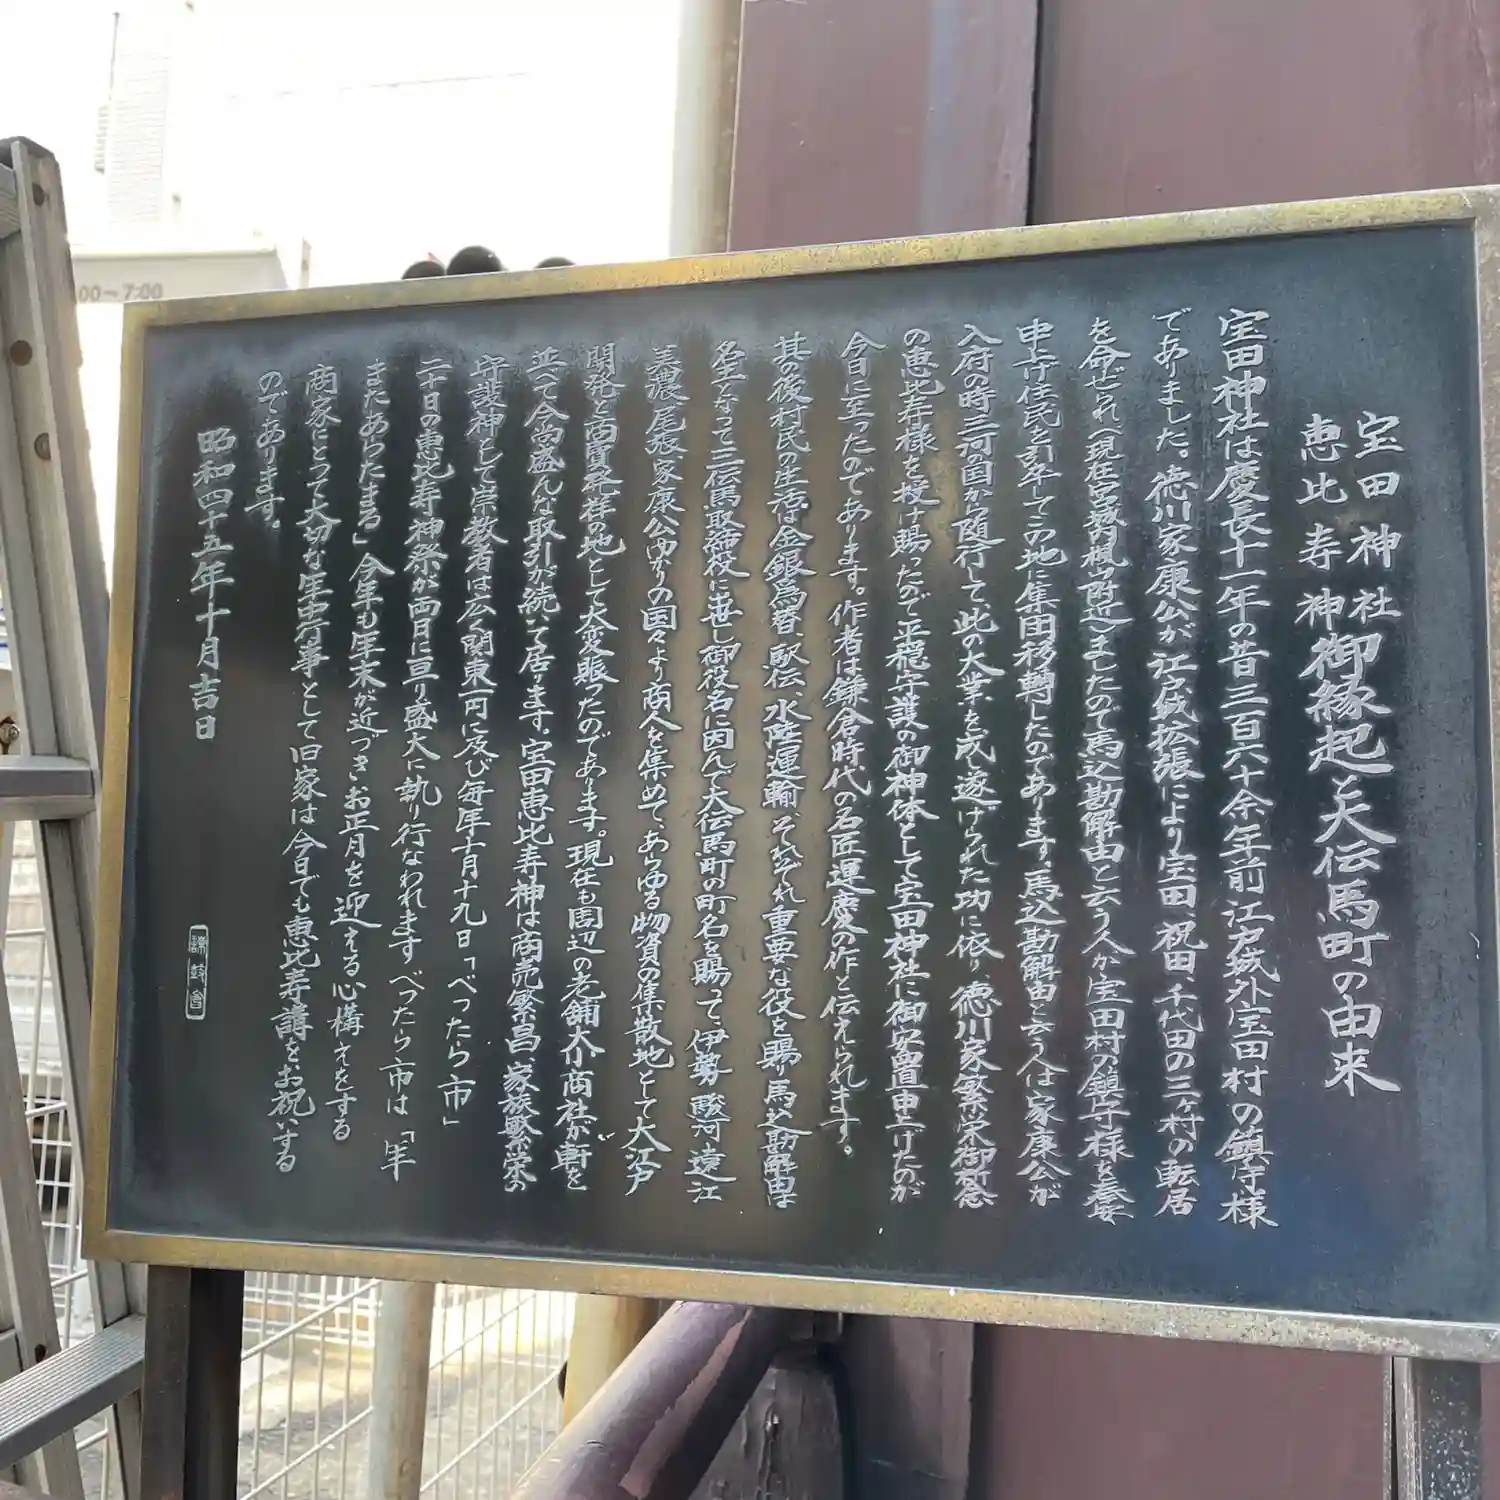 宝田神社
恵比寿神
御縁起と大伝馬町の由来
宝田神社は慶長十一年の昔三百六十余年前江戸城外宝田村の鎮守様
でありました。徳川家康公が江戸城拡張により宝田、祝田、千代田の三ヶ村の転居
を命ぜられ(現在宮城内楓山附近)ましたので馬込勘解由と云う人が宝田村の鎮守様を奉安
申上げ住民を引率してこの地に集団移轉したのであります。馬込勘解由と云う人は家康公が
入府の時三河の国から随行して、此の大業を成し遂げられた功に依り、徳川家繁栄御祈念
の恵比寿様を授け賜ったので平穏守護の御神体として宝田神社に御安置申上げたのが
今日に至ったのであります。作者は鎌倉時代の名匠運慶の作と伝えられます。
其の後村民の生活は金銀為替、駅伝、水陸運輸、それぞれ重要な役を賜り馬込勘解由は
名主となって三伝馬取締役に出世し御役名に因んで大伝馬町の町名を賜って、伊勢、駿河、遠江
美濃、尾張、家康公ゆかりの国々より商人を集めて、あらゆる物資の集散地として大江戸
開発と商買発祥の地として大変賑ったのであります。現在も周辺の老舗大小商社が軒を
並べて今尚盛んな取引が続いて居ります。宝田恵比寿神は商売繁昌、家族繁栄の
守護神として崇敬者は広く関東一円に及び毎年十月十九日「べったら市」
二十日の恵比寿神祭が両日に亘り盛大に執り行なわれますべったら市は「年
またあらたまる」今年も年末が近づきお正月を迎える心構えをする
商家にとって大切な年中行事として旧家は今日でも恵比寿講を、お祝いする
のであります。
昭和四十五年十月吉日
00~7:00